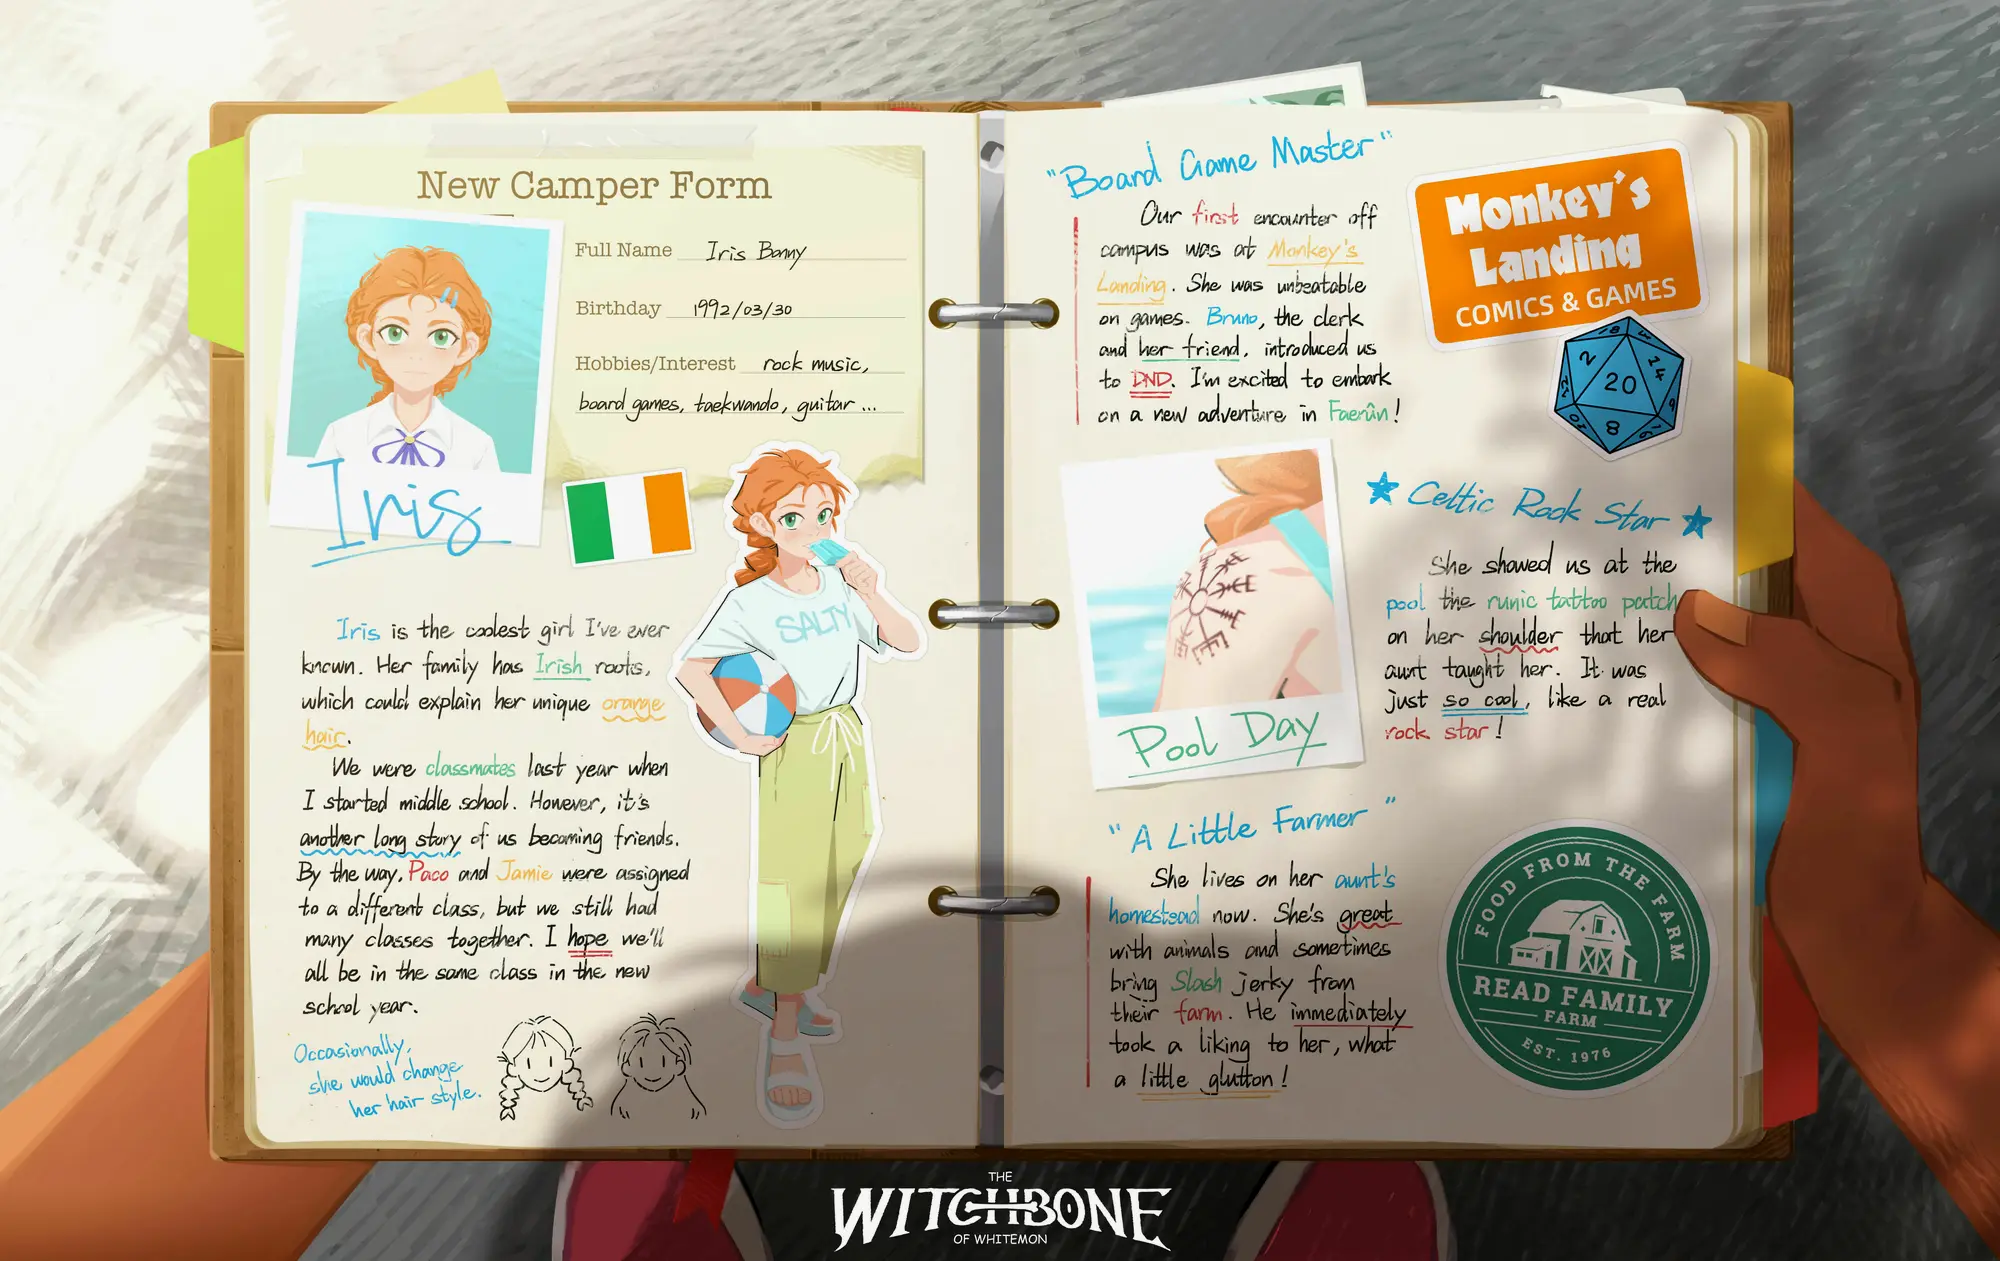 New Camper Form
Full Name Iris Bonny
Birthday 1992/03/30
Hobbies/Interest rock music,
board games, taekwando, guitar ...
Iris
SALTY
Iris is the coolest girl I've ever
known. Her family has Irish roots,
which could explain her unique orange
hair.
We were classmates last year when
I started middle school. However, it's
another long story of us becoming friends.
By the way, Paco and Jamie were assigned
to a different class, but we still had
many classes together. I hope we'll
all be in the same class in the new
school year.
Occasionally,
she would change
her hair style.
"Board Game Master"
Our first encounter off
campus was at Monkey's
Landing. She was unbeatable
on games. Bruno, the clerk
and her friend, introduced us
to DND. I'm excited to embark
on a new adventure in Faerûn!
Monkey's
Landing
COMICS & GAMES
2
14
20
8
18
9
10
16
Pool Day
Celtic Rock Star
She showed us at the
pool the runic tattoo patch
on her shoulder that her
aunt taught her. It was
just so cool, like a real
rock star!
"A Little Farmer"
She lives on her aunt's
homestead now. She's great
with animals and sometimes
bring Slash jerky from
their farm. He immediately
took a liking to her, what
a little glutton!
FOOD FROM THE FARM
READ FAMILY
FARM
EST. 1976
THE
WITCHBONE
OF WHITEMON